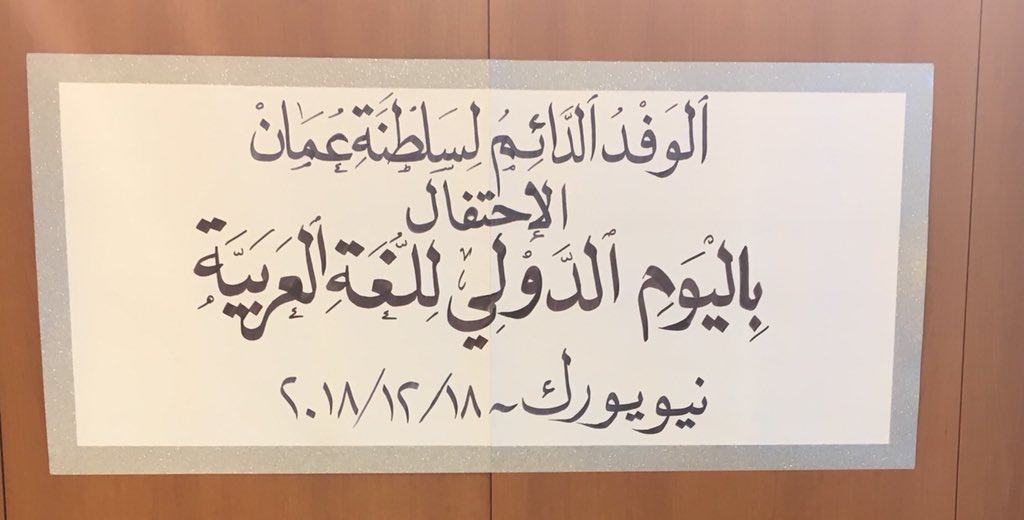 ٱلوَفْدُ ٱلدَّائِمُ لِسَلْطَنَةِ عُمَانْ
الإحتفال
بِاليْوَمِ ٱلدَّوْلِي لِلُّغَةِ ٱلعَرَبيَّة
نيويورك ~ ٢٠١٨/١٢/١٨